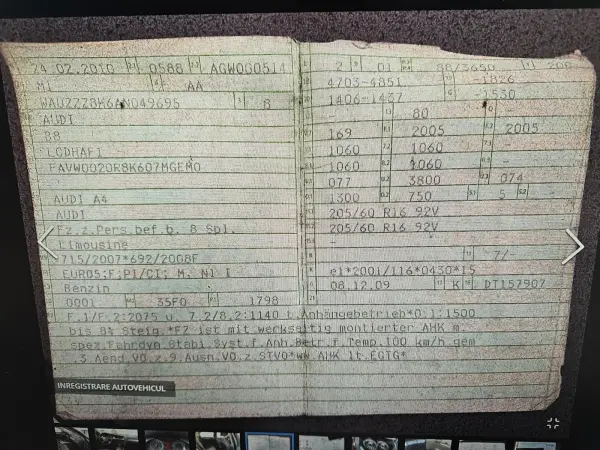 24.02.2010 0588 AGW000514
M1 AA
WAUZZZ8K6AN049695 8
AUDI
B8
LCDHAF1
FAVW0020R8K607MGEM0
AUDI A4
AUDI
Fz.z.Pers.bef.b. 8 Spl.
Limousine
715/2007*692/2008F
EURO5;F;PI/CI; M, N1 I
Benzin
0001 35F0 1798
2 01 88/3650
4703-4851 -1826
1406-1437 -1530
- 80 -
169 2005 2005
1060 1060 -
1060 1060 -
077 3800 074
1300 750 5 -
205/60 R16 92V
205/60 R16 92V
-
7/-
e1*2001/116*0430*15
08.12.09 K DT157907
F.1/F.2:2075 u. 7.2/8.2:1140 b.Anhängebetrieb*O.1:1500
bis 8% Steig.*FZ ist mit werkseitig montierter AHK m.
spez.Fahrdyn Stabi.Syst.f.Anh.Betr.f.Temp.100 km/h gem
.3.Aend.VO.z.9.Ausn.VO.z.STVO*ww.AHK lt.EGTG*
INREGISTRARE AUTOVEHICUL